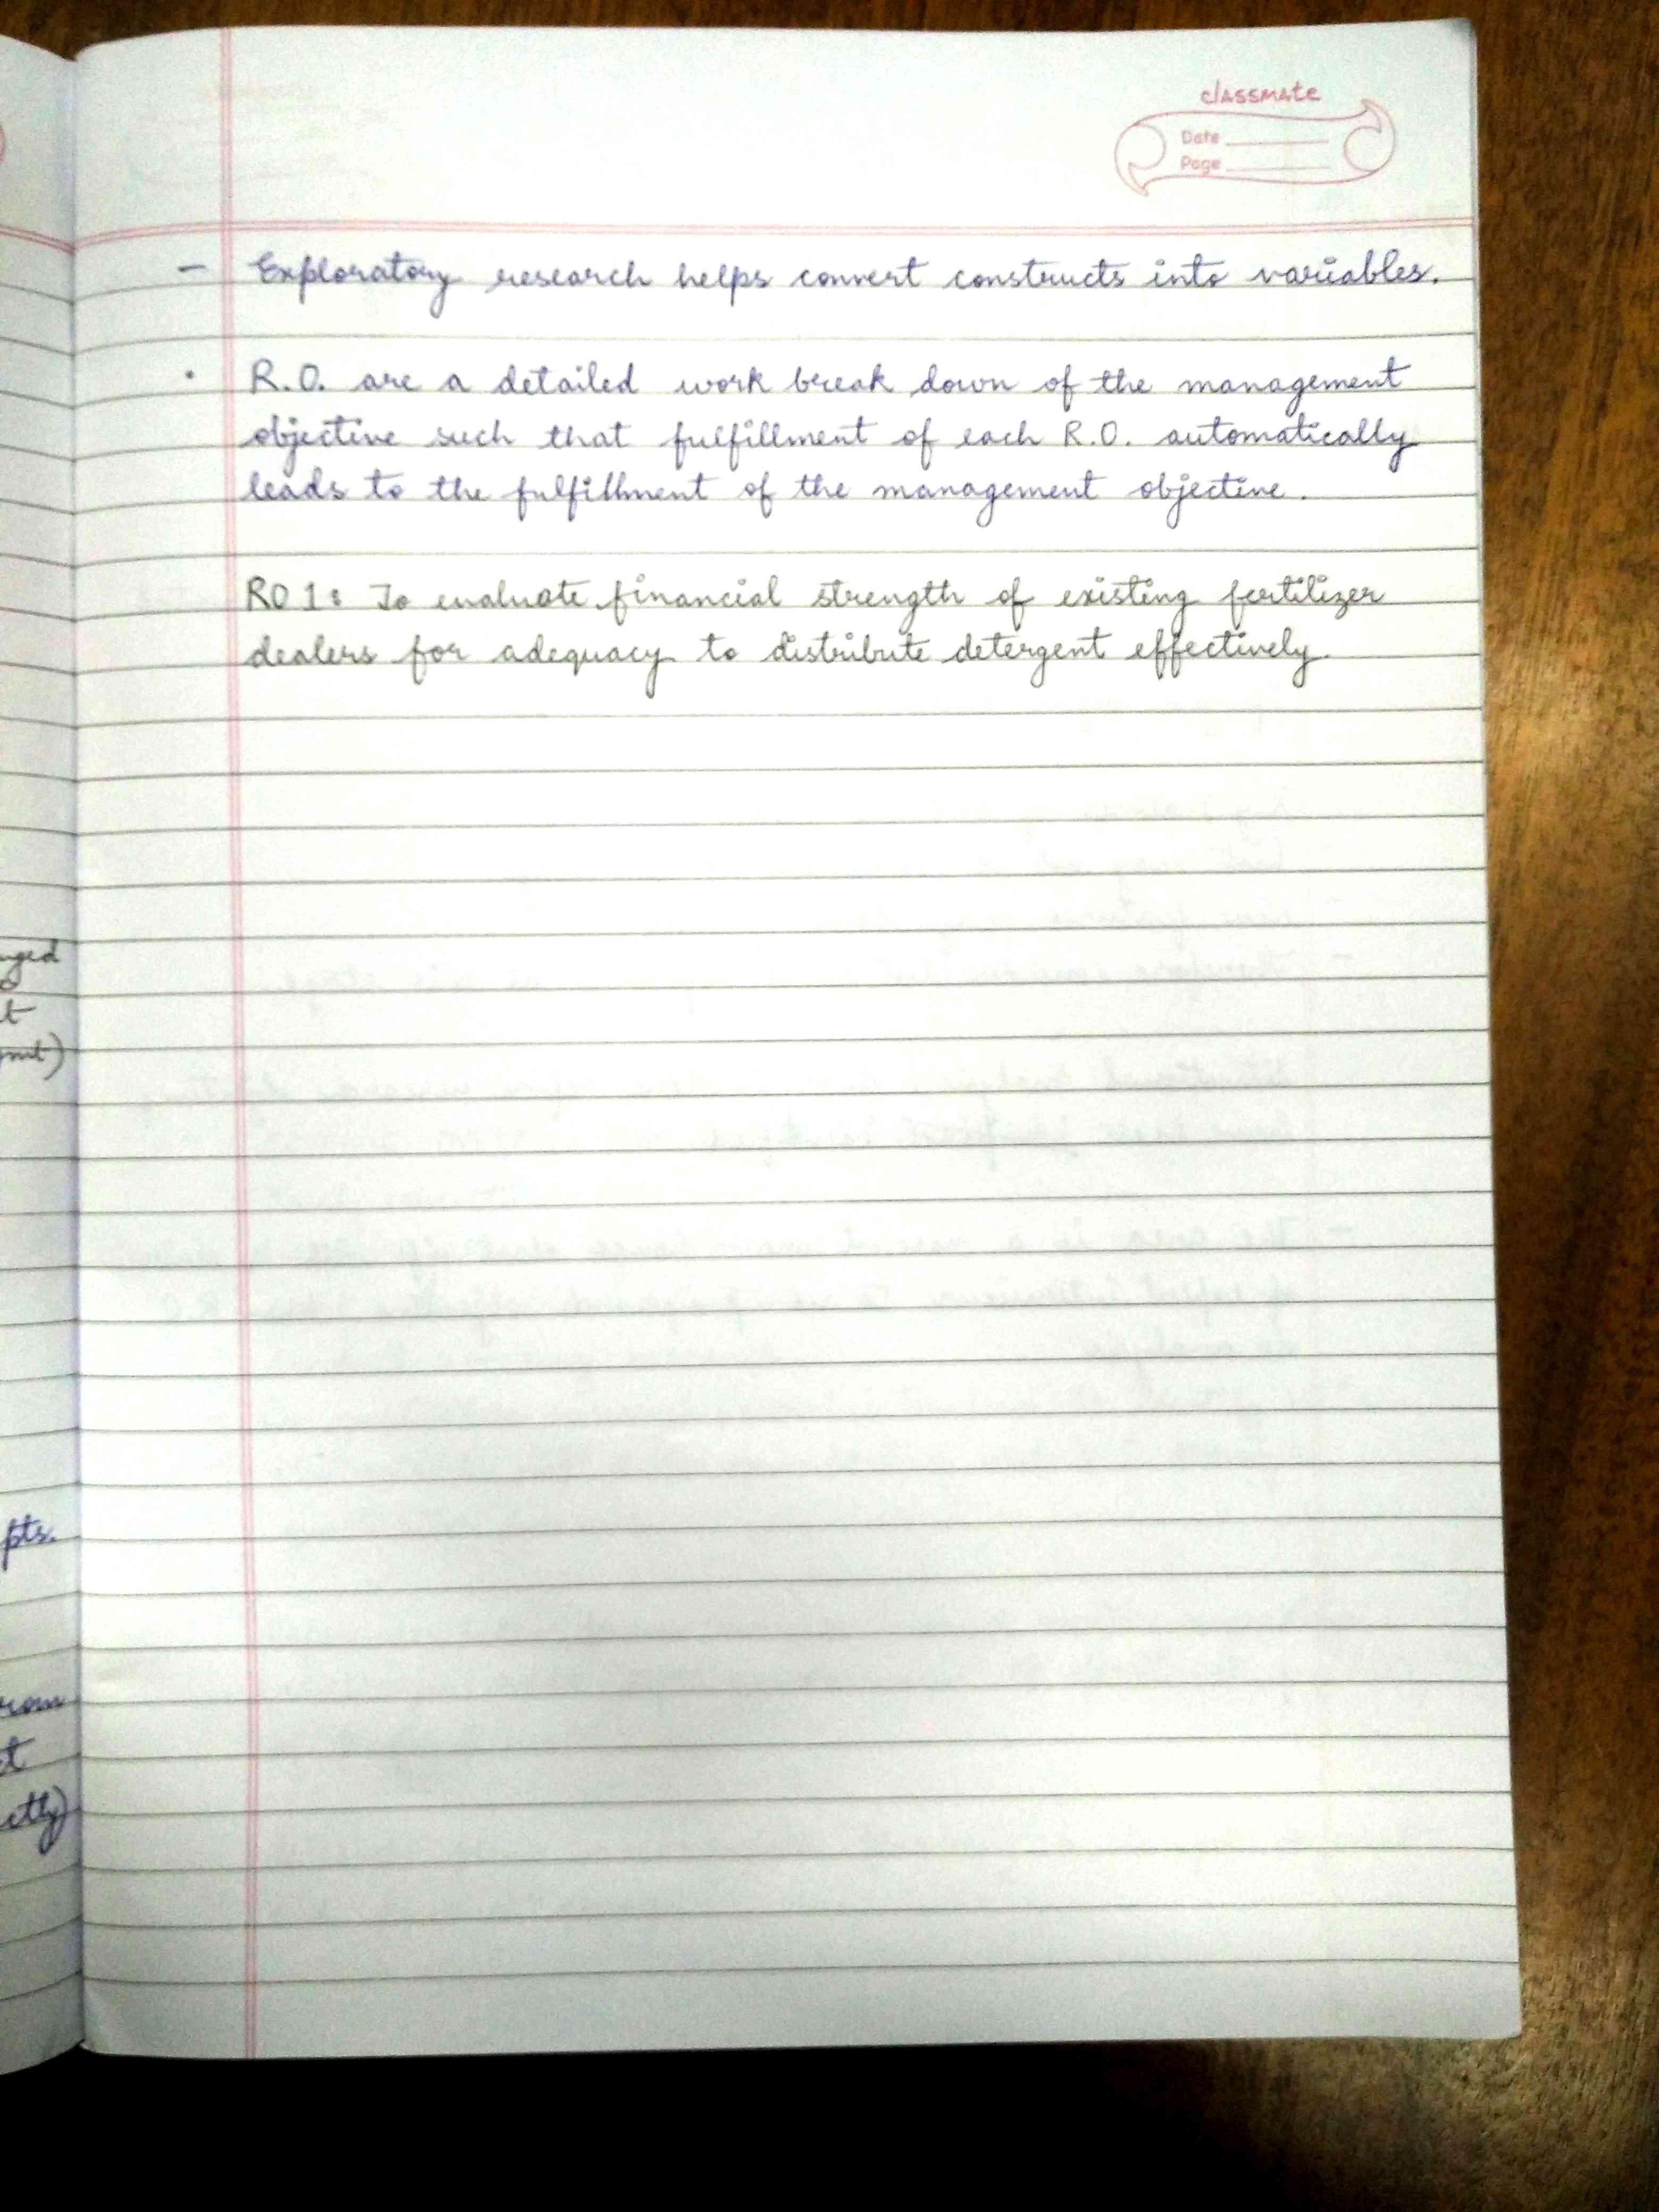 classmate
Date
Page
- Exploratory research helps convert constructs into variables.
• R.O. are a detailed work break down of the management
objective such that fulfillment of each R.O. automatically
leads to the fulfillment of the management objective.
RO 1: To evaluate financial strength of existing fertilizer
dealers for adequacy to distribute detergent effectively.